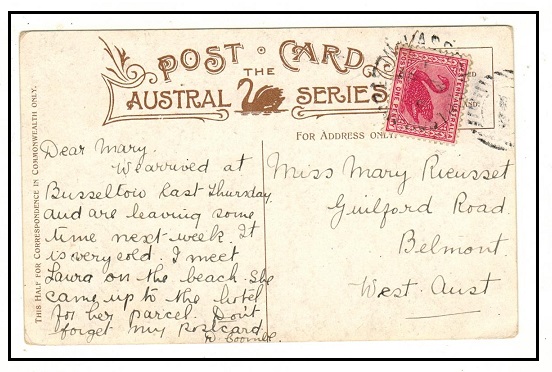 POST CARD
THE
AUSTRAL SERIES
THIS HALF FOR CORRESPONDENCE IN COMMONWEALTH ONLY.
FOR ADDRESS ONLY.
Dear Mary.
We arrived at
Busselton last Thursday
and are leaving some
time next week It
is very cold. I meet
Laura on the beach. She
came up to the hotel
for her parcel. Don't
forget my Postcard
Miss Mary Rieusset
Guilford Road.
Belmont
West. Aust
WESTERN AUSTRALIA
ONE PENNY